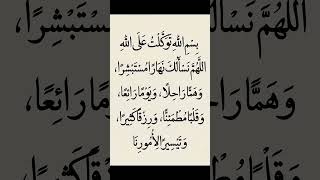 بِسْمِ اللهِ تَوَكَّلْتُ عَلَى اللهِ
اللَّهُمَّ نَسْأَلُكَ نَهَارًا مُسْتَبْشِرًا،
وَهَمًّا رَاحِلًا، وَيَوْمًا رَائِعًا،
وَقَلْبًا مُطْمَئِنًّا، وَرِزْقًا كَثِيرًا،
وَتَيْسِيرًا لِأُمُورِنَا